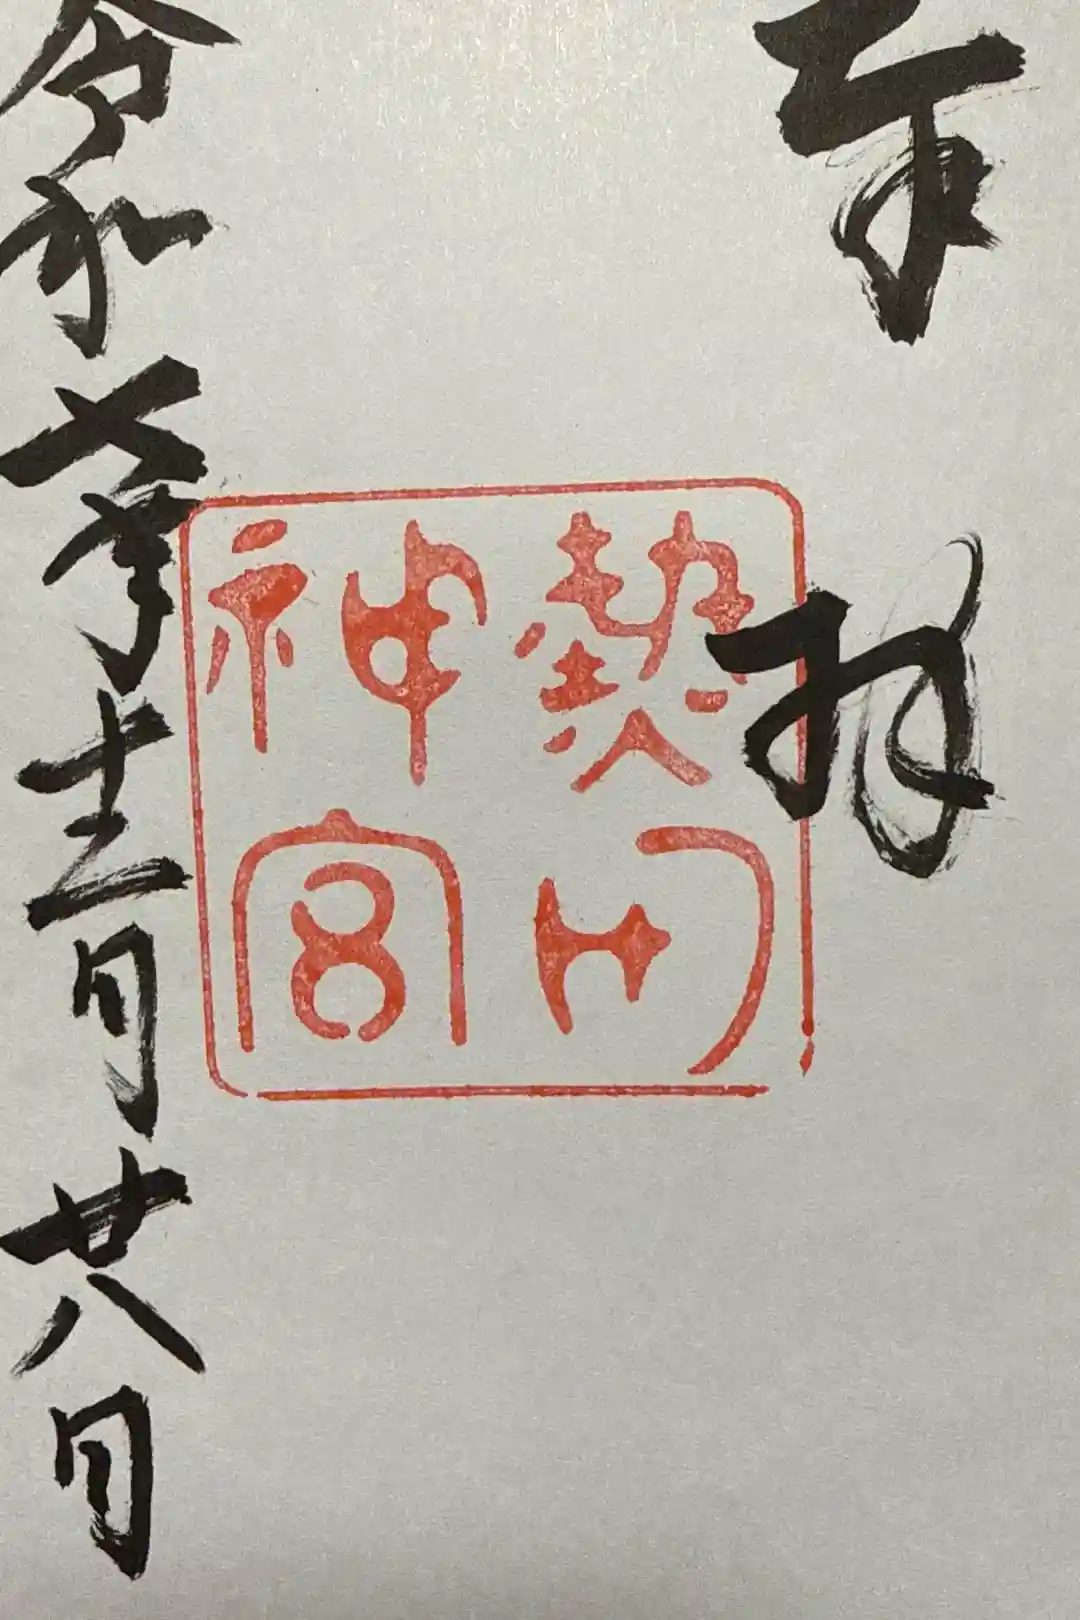 奉拝
熱田
神宮
令和年十二月廿八日